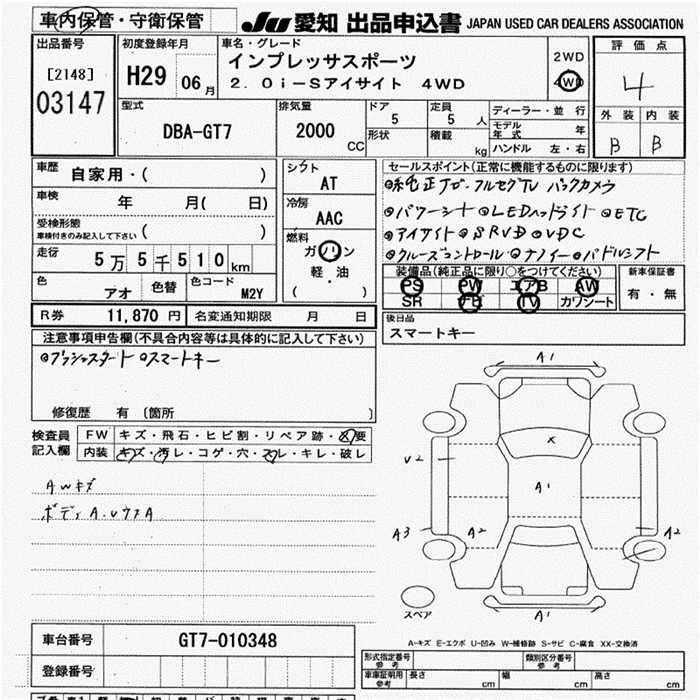 車内保管・守衛保管
JU 愛知 出品申込書 JAPAN USED CAR DEALERS ASSOCIATION
出品番号
[2148]
03147
初度登録年月
H29 06月
車名・グレード
インプレッサスポーツ
2.0i-Sアイサイト 4WD
2WD
4WD
評価点
4
外装 内装
B B
型式
DBA-GT7
排気量
2000
CC
ドア
5
定員
5人
形状
積載
kg
ディーラー・並行
モデル年式 年
ハンドル 左・右
車歴 自家用・( )
車検 年 月( 日)
受検形態
車検付きのみ記入して下さい ( )
走行 5万5千510km
色 アオ 色替 色コード M2Y
シフト
AT
冷房
AAC
燃料
ガソリン
軽・油
( )
セールスポイント(正常に機能するものに限ります)
◎純正ナビ・フルセグTV バックカメラ
◎パワーシート ◎LEDヘッドライト ◎ETC
◎アイサイト ◎SRVD ◎VDC
◎クルーズコントロール ◎ナノイー ◎パドルシフト
装備品(純正品に限り○をつけてください)
PS PW エアB AW
SR ナビ TV カワシート
新車保証書
有・無
R券 11,870円 名変通知期限 月 日
後日品
スマートキー
注意事項申告欄(不具合内容等は具体的に記入して下さい)
◎プッシュスタート ◎スマートキー
修復歴 有 〔箇所 〕
検査員
記入欄
FW キズ・飛石・ヒビ割・リペア跡・X要
内装 キズ・汚レ・コゲ・穴・スレ・キレ・破レ
AWキズ
ボディA.Uソノタ
A1
X
U2
A1
A3
A2
A2
A2
A1
スペア
A-キズ E-エクボ U-凹み W-補修跡 S-サビ C-腐食 XX-交換済
車台番号 GT7-010348
登録番号
形式指定番号
参考
類別区分番号
参考
車庫証明用
参考
長さ cm 幅 cm 高さ cm